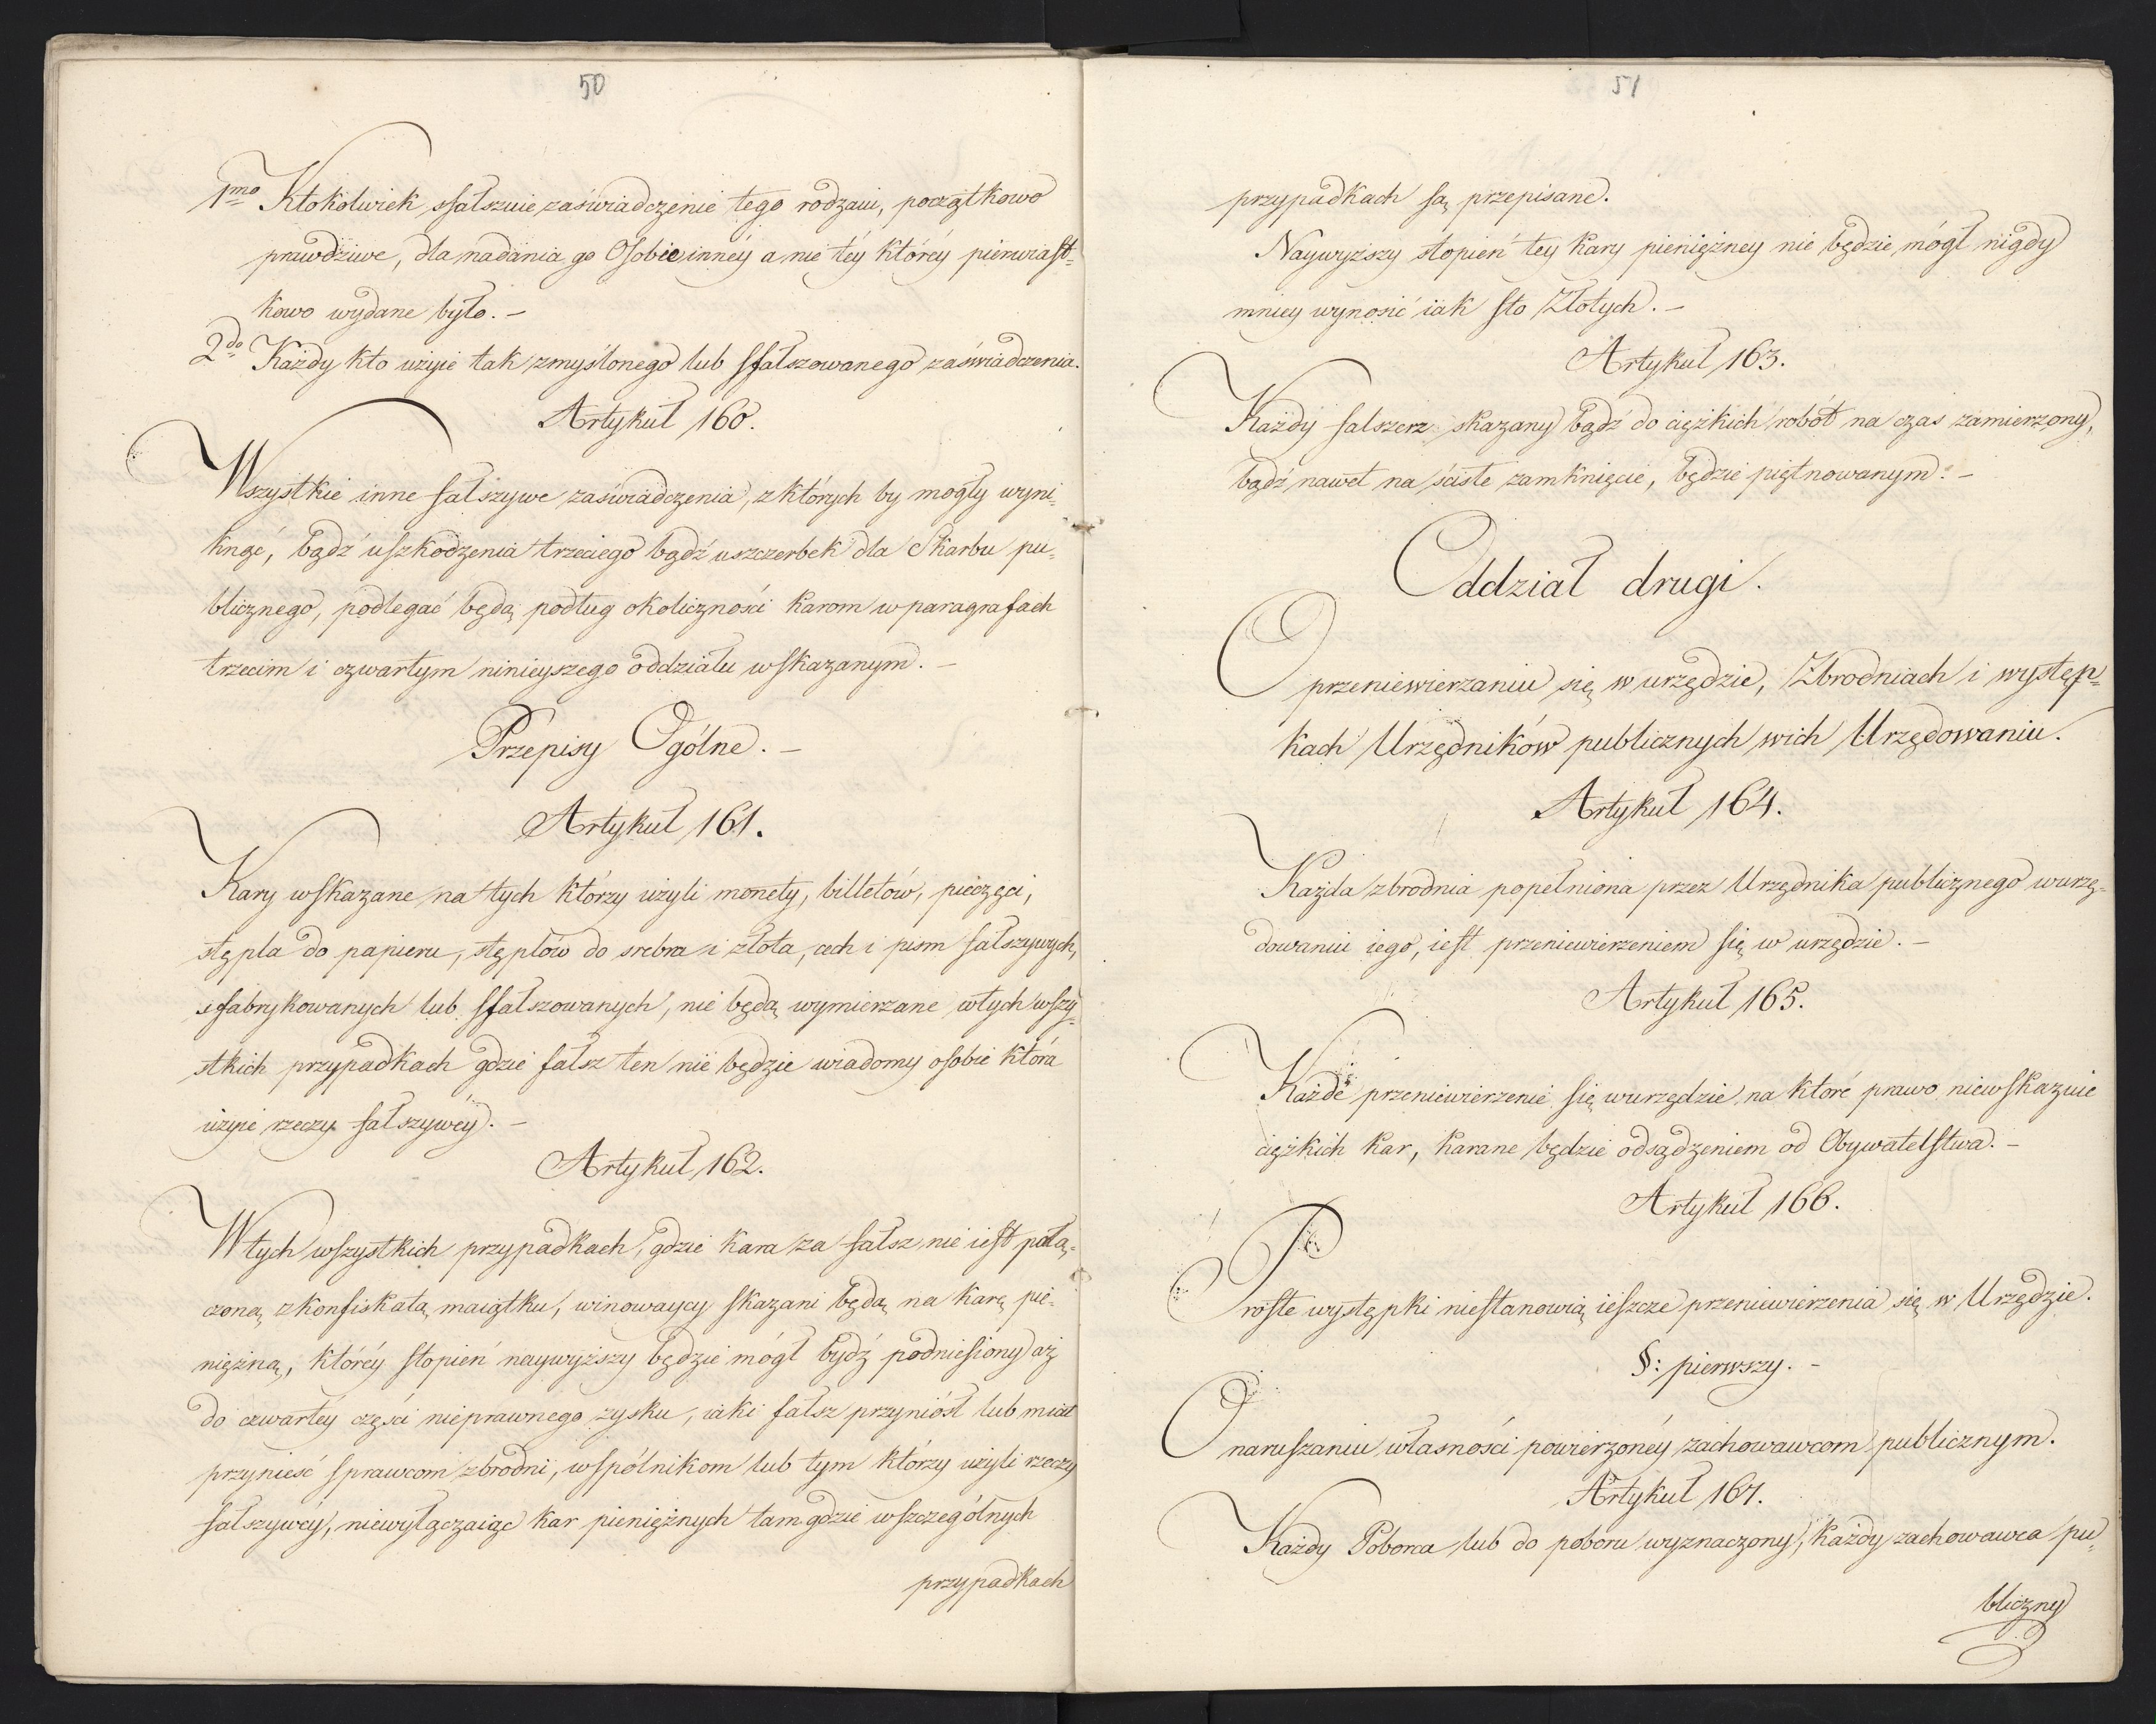 50
1mo Ktokolwiek sfałszuie zaświadczenie tego rodzaiu, początkowo
prawdziwe, dla nadania go Osobie innéy a nie téy któréy pierwiast=
kowo wydane było. –
2do Każdy kto użyie tak zmyślonego lub sfałszowanego zaświadczenia.
Artykuł 160.
Wszystkie inne fałszywe zaświadczenia, z których by mogły wyni=
knąć, bądź uszkodzenia trzeciego bądź uszczerbek dla Skarbu pu=
blicznego, podlegać będą podług okoliczności karom w paragrafach
trzecim i czwartym ninieyszego oddziału wskazanym. –
Przepisy Ogólne. –
Artykuł 161.
Kary wskazane na tych którzy użyli monety, billetów, pieczęci,
stępla do papieru, stęplów do srebra i złota, cech i pism fałszywych,
sfabrykowanych lub sfałszowanych, nie będą wymierzane w tych wszy=
stkich przypadkach gdzie fałsz ten nie będzie wiadomy osobie która
użyie rzeczy fałszywéy. –
Artykuł 162.
W tych wszystkich przypadkach, gdzie kara za fałsz nie iest połą=
czoną z konfiskatą maiątku, winowaycy skazani będą na karę pie=
niężną, któréy stopień naywyższy będzie mógł bydź podniesiony aż
do czwartéy części nieprawnego zysku, iaki fałsz przyniósł lub miał
przynieść sprawcom zbrodni, wspólnikom lub tym którzy użyli rzeczy
fałszywéy, niewyłączaiąc kar pieniężnych tam gdzie w szczególnych
przypadkach
51
przypadkach są przepisane.
Naywyższy stopień tey kary pieniężney nie będzie mógł nigdy
mniey wynosić iak sto Złotych. –
Artykuł 163.
Każdy fałszerz skazany bądź do ciężkich robót na czas zamierzony,
bądź nawet na ściste zamknięcie, będzie piętnowanym. –
Oddział drugi.
O przeniewierzaniu się w urzędzie, Zbrodniach i występ=
kach Urzędników publicznych w ich Urzędowaniu.
Artykuł 164.
Każda zbrodnia popełniona przez Urzędnika publicznego w urzę=
dowaniu iego, iest przeniewierzeniem się w urzędzie. –
Artykuł 165.
Każde przeniewierzenie się w urzędzie na które prawo niewskazuie
ciężkich kar, karane będzie odsądzeniem od Obywatelstwa. –
Artykuł 166.
Proste występki niestanowią ieszcze przeniewierzenia się w Urzędzie.
§: pierwszy. –
O naruszaniu własności powierzonéy zachowawcom publicznym.
Artykuł 167.
Każdy Poborca lub do poboru wyznaczony, każdy zachowawca pu=
bliczny